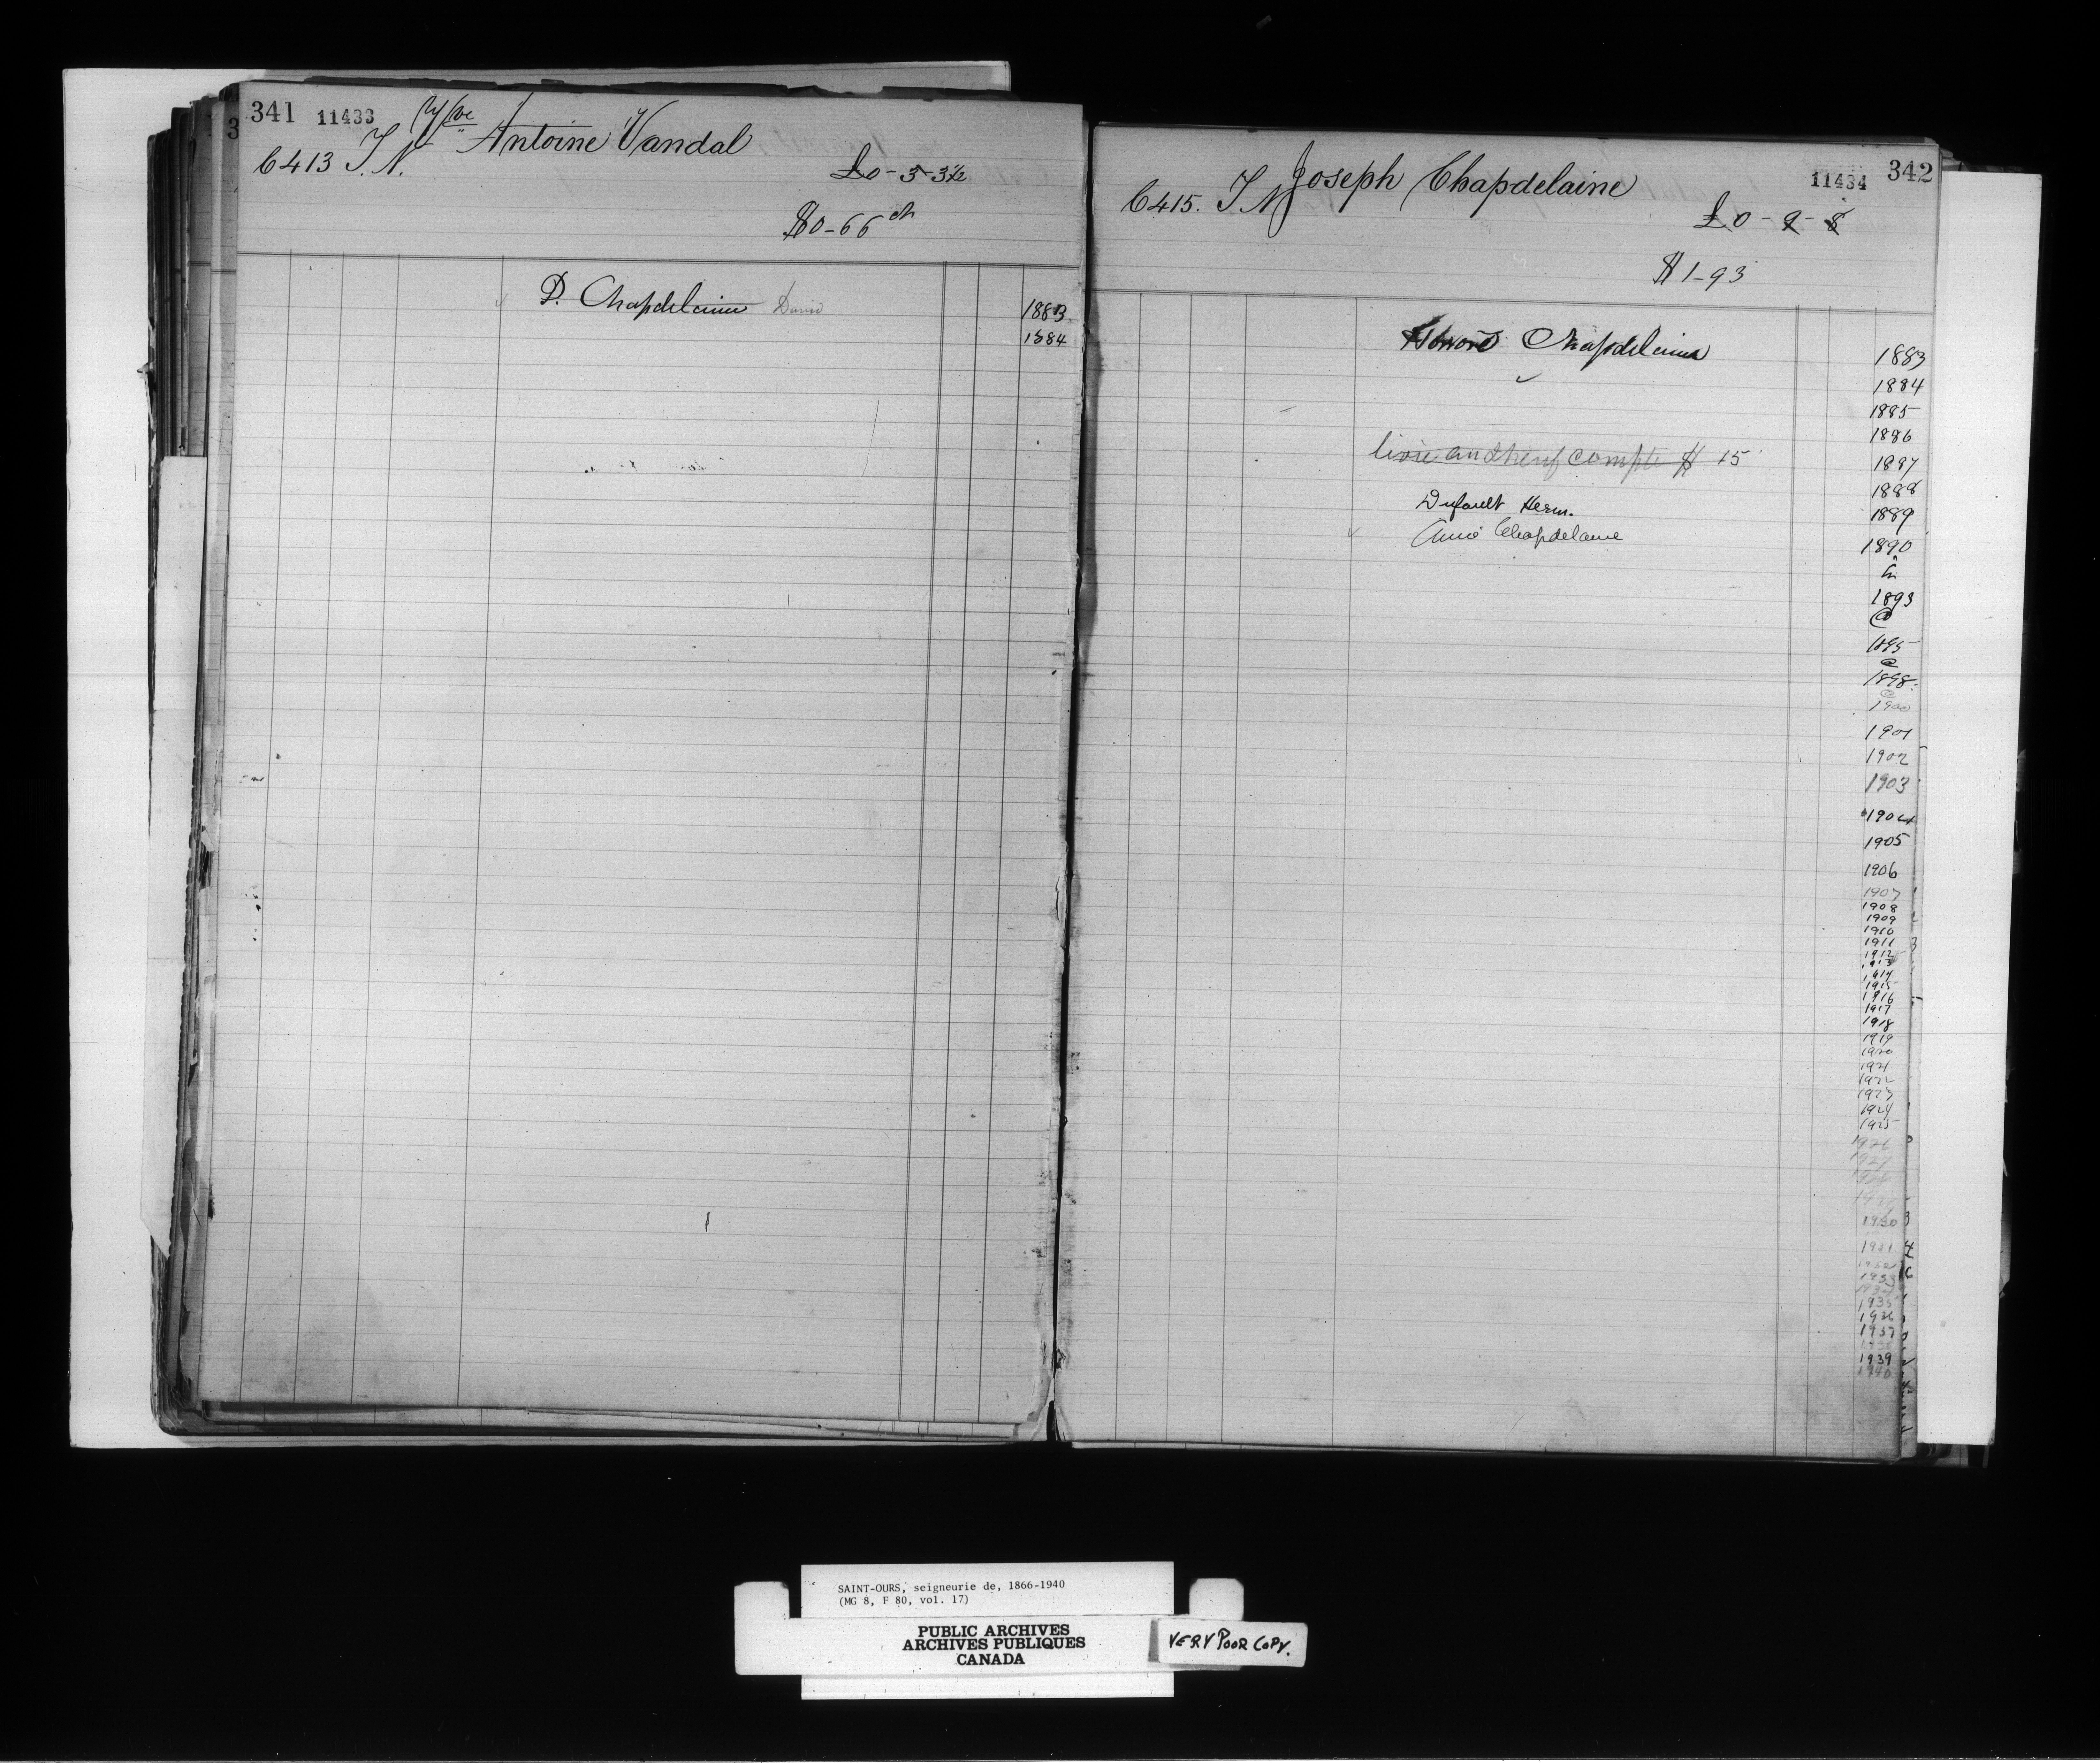 341 11433
Vve Antoine Vandal
C 413 T.N.
£0-3-3½
$0-66 cts
P. Chapdelaine David
1883
1884
11434 342
Joseph Chapdelaine
C 415. T N
£0-9-8
$1-93
Chapdelaine
1883
1884
1885
1886
livre compte $ 15
1887
1888
Dufault Herm.
1889
Chapdelaine
1890
à
1893
@
1895
@
1898
@
1900
1901
1902
1903
1904
1905
1906
1907
1908
1909
1910
1911
1912
1913
1914
1915
1916
1917
1918
1919
1920
1921
1922
1923
1924
1925
1926
1927
1928
1929
1930
1931
1932
1933
1934
1935
1936
1937
1938
1939
1940
SAINT-OURS, seigneurie de, 1866-1940
(MG 8, F 80, vol. 17)
PUBLIC ARCHIVES
ARCHIVES PUBLIQUES
CANADA
VERY POOR COPY.